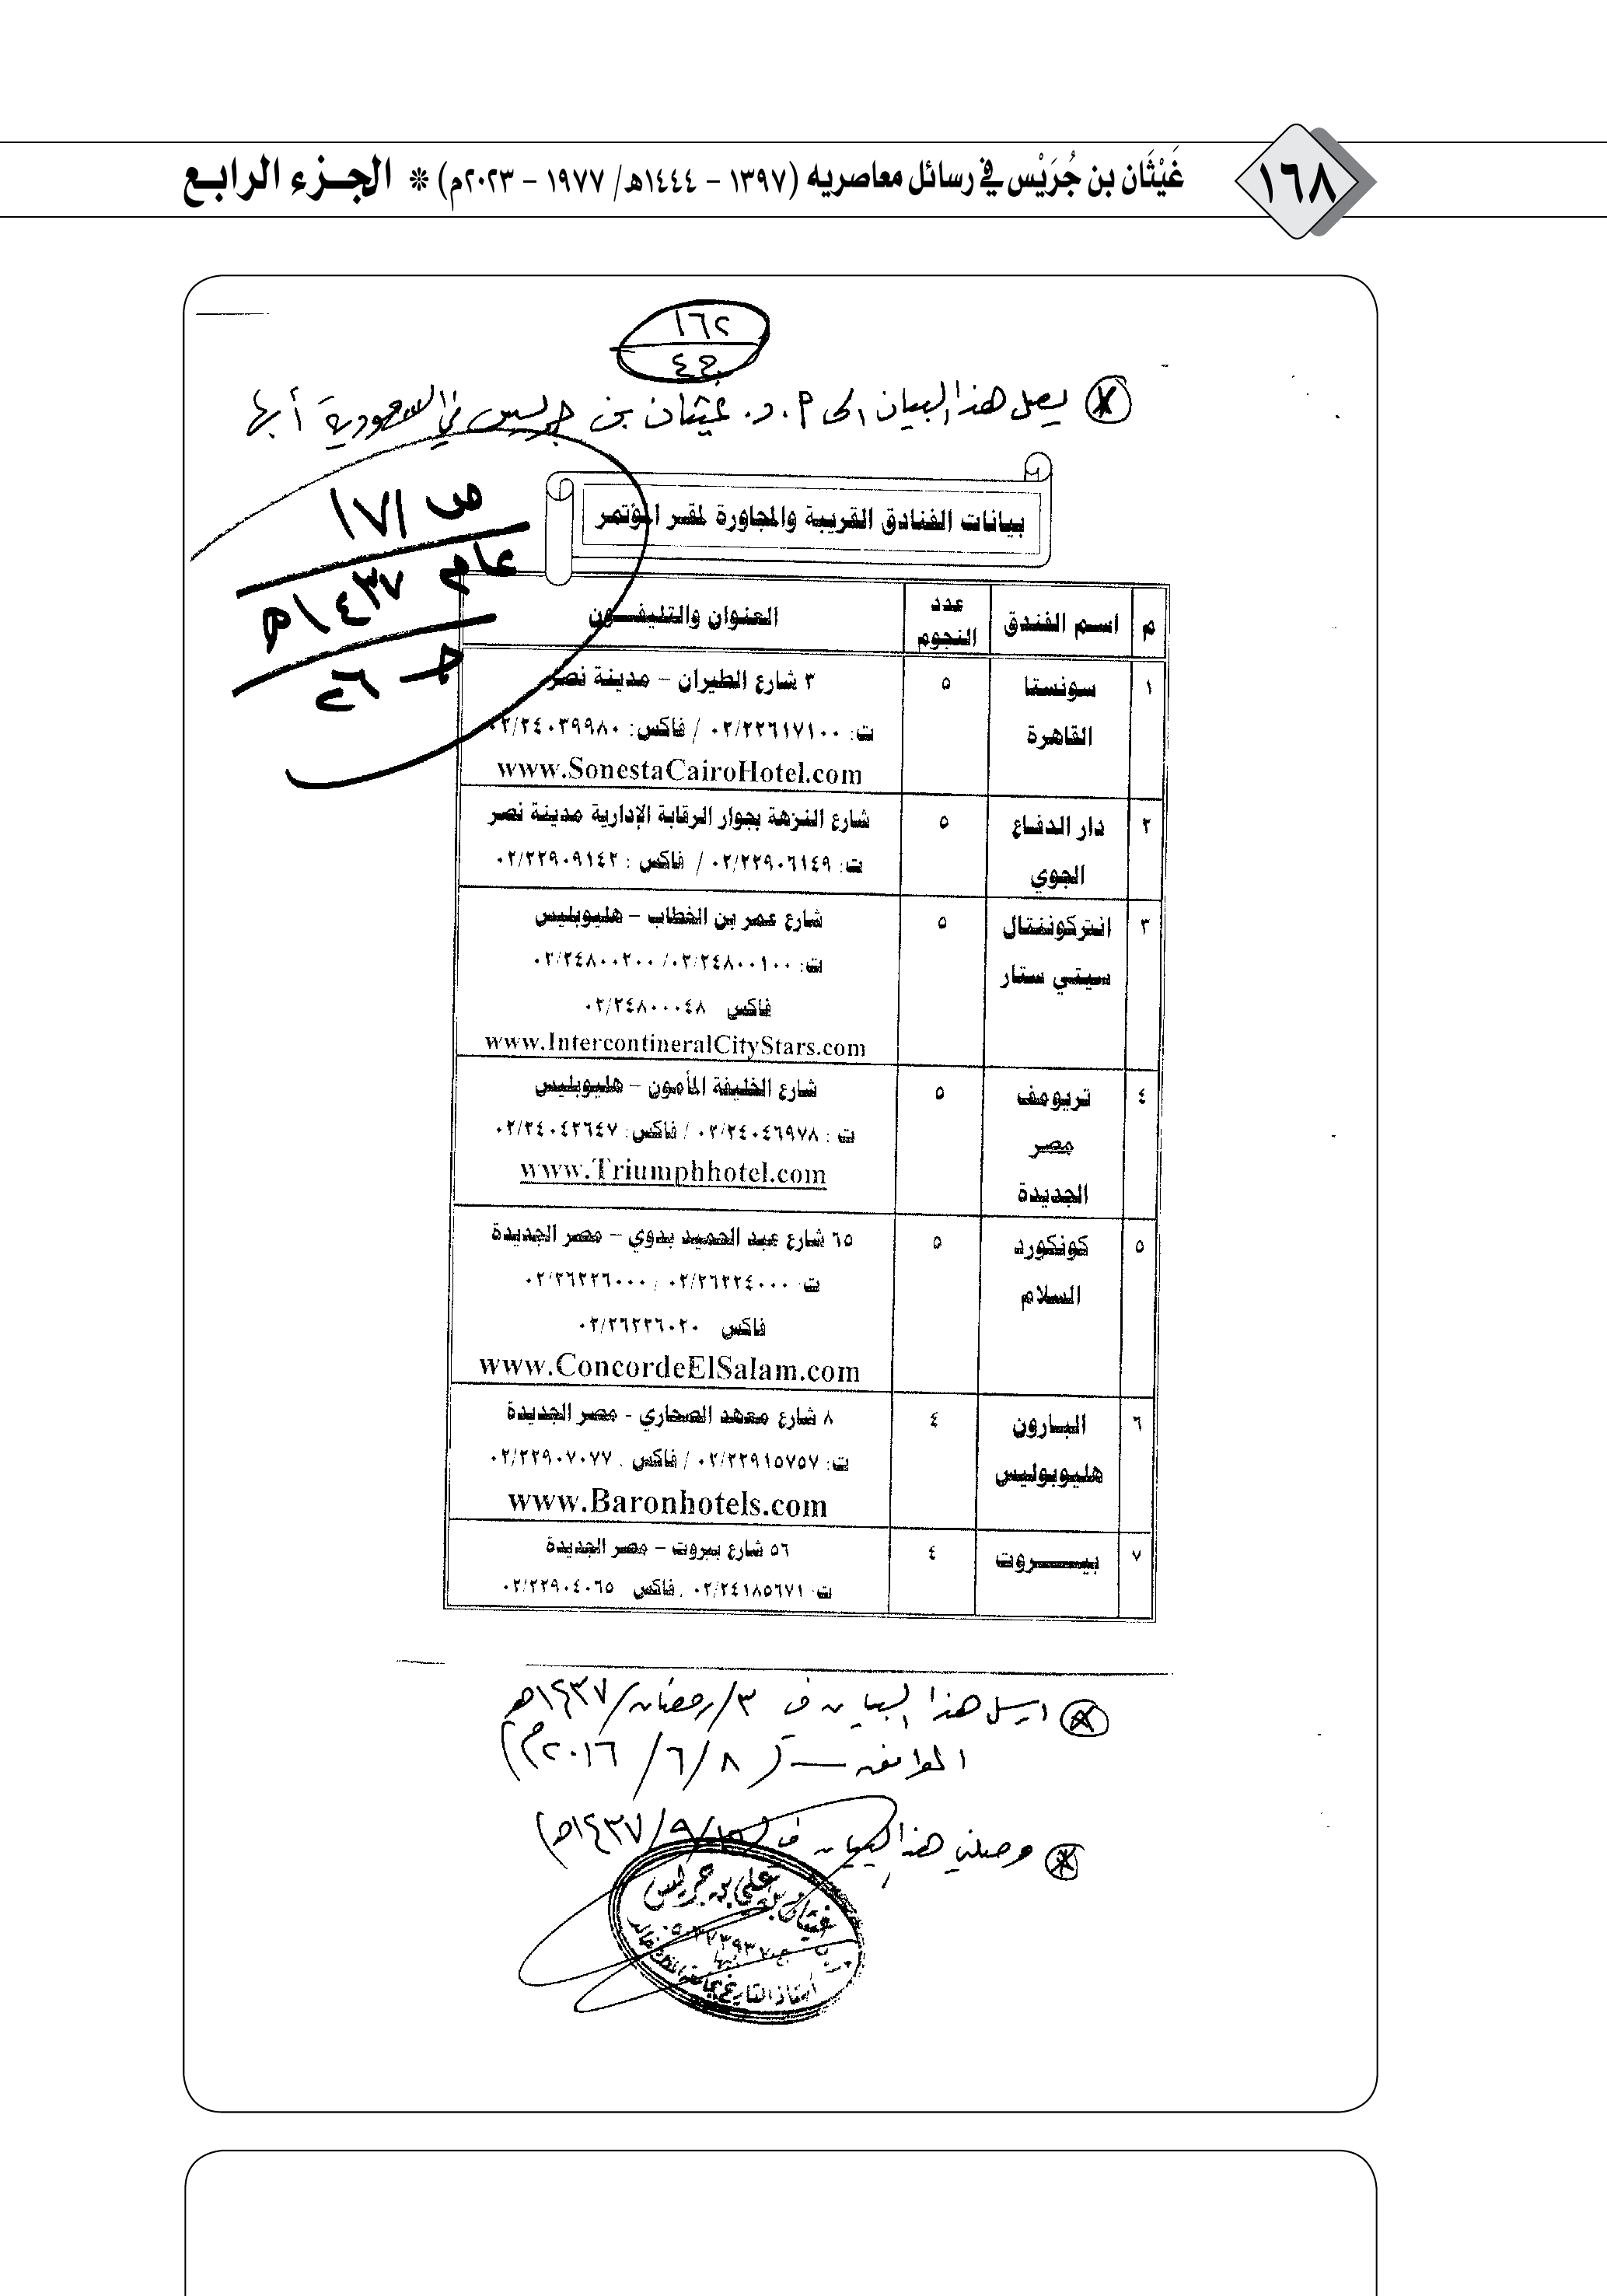 ١٦٨
غَيْثَان بن جُرَيْس في رسائل معاصريه (١٣٩٧ - ١٤٤٤هـ/ ١٩٧٧ - ٢٠٢٣م) * الجـزء الرابـع
١٦٢
ج٤
يصل هذا البيان الى أ.د. غيثان بن جريس في السعودية أبها
ص ١٧١
عام ١٤٣٧هـ
جـ ٢٦
بيانات الفنادق القريبة والمجاورة لمقر المؤتمر
م اسم الفندق عدد النجوم العنوان والتليفـون
١ سونستا ٥ ٣ شارع الطيران – مدينة نصر
القاهرة ت: ٠٢/٢٢٦١٧١٠٠ / فاكس: ٠٢/٢٤٠٣٩٩٨٠
www.SonestaCairoHotel.com
٢ دار الدفاع ٥ شارع النزهة بجوار الرقابة الإدارية مدينة نصر
الجوي ت: ٠٢/٢٢٩٠٦١٤٩ / فاكس : ٠٢/٢٢٩٠٩١٤٢
٣ انتركوننتال ٥ شارع عمر بن الخطاب – هليوبليس
سيتي ستار ت: ٠٢/٢٤٨٠٠١٠٠ /٠٢/٢٤٨٠٠٢٠٠
فاكس ٠٢/٢٤٨٠٠٠٤٨
www.IntercontineralCityStars.com
٤ تريومف ٥ شارع الخليفة المأمون – هليوبليس
مصر ت : ٠٢/٢٤٠٤٦٩٧٨ / فاكس: ٠٢/٢٤٠٤٢٦٤٧
الجديدة www.Triumphhotel.com
٥ كونكورد ٥ ٦٥ شارع عبد الحميد بدوي – مصر الجديدة
السلام ت: ٠٢/٢٦٢٢٤٠٠٠ / ٠٢/٢٦٢٢٦٠٠٠
فاكس ٠٢/٢٦٢٢٦٠٢٠
www.ConcordeElSalam.com
٦ البارون ٤ ٨ شارع معهد الصحاري - مصر الجديدة
هليوبوليس ت: ٠٢/٢٢٩١٥٧٥٧ / فاكس . ٠٢/٢٢٩٠٧٠٧٧
www.Baronhotels.com
٧ بيـــــروت ٤ ٥٦ شارع بيروت – مصر الجديدة
ت: ٠٢/٢٤١٨٥٦٧١ . فاكس ٠٢/٢٢٩٠٤٠٦٥
ارسل هذا البيان في ٣/رمضان/١٤٣٧هـ
الموافق — (٨/٦/٢٠١٦م)
وصلني هذا البيان في /٩/١٤٣٧هـ)
غيثان بن علي بن جريس
أبها
أستاذ التاريخ بجامعة الملك خالد